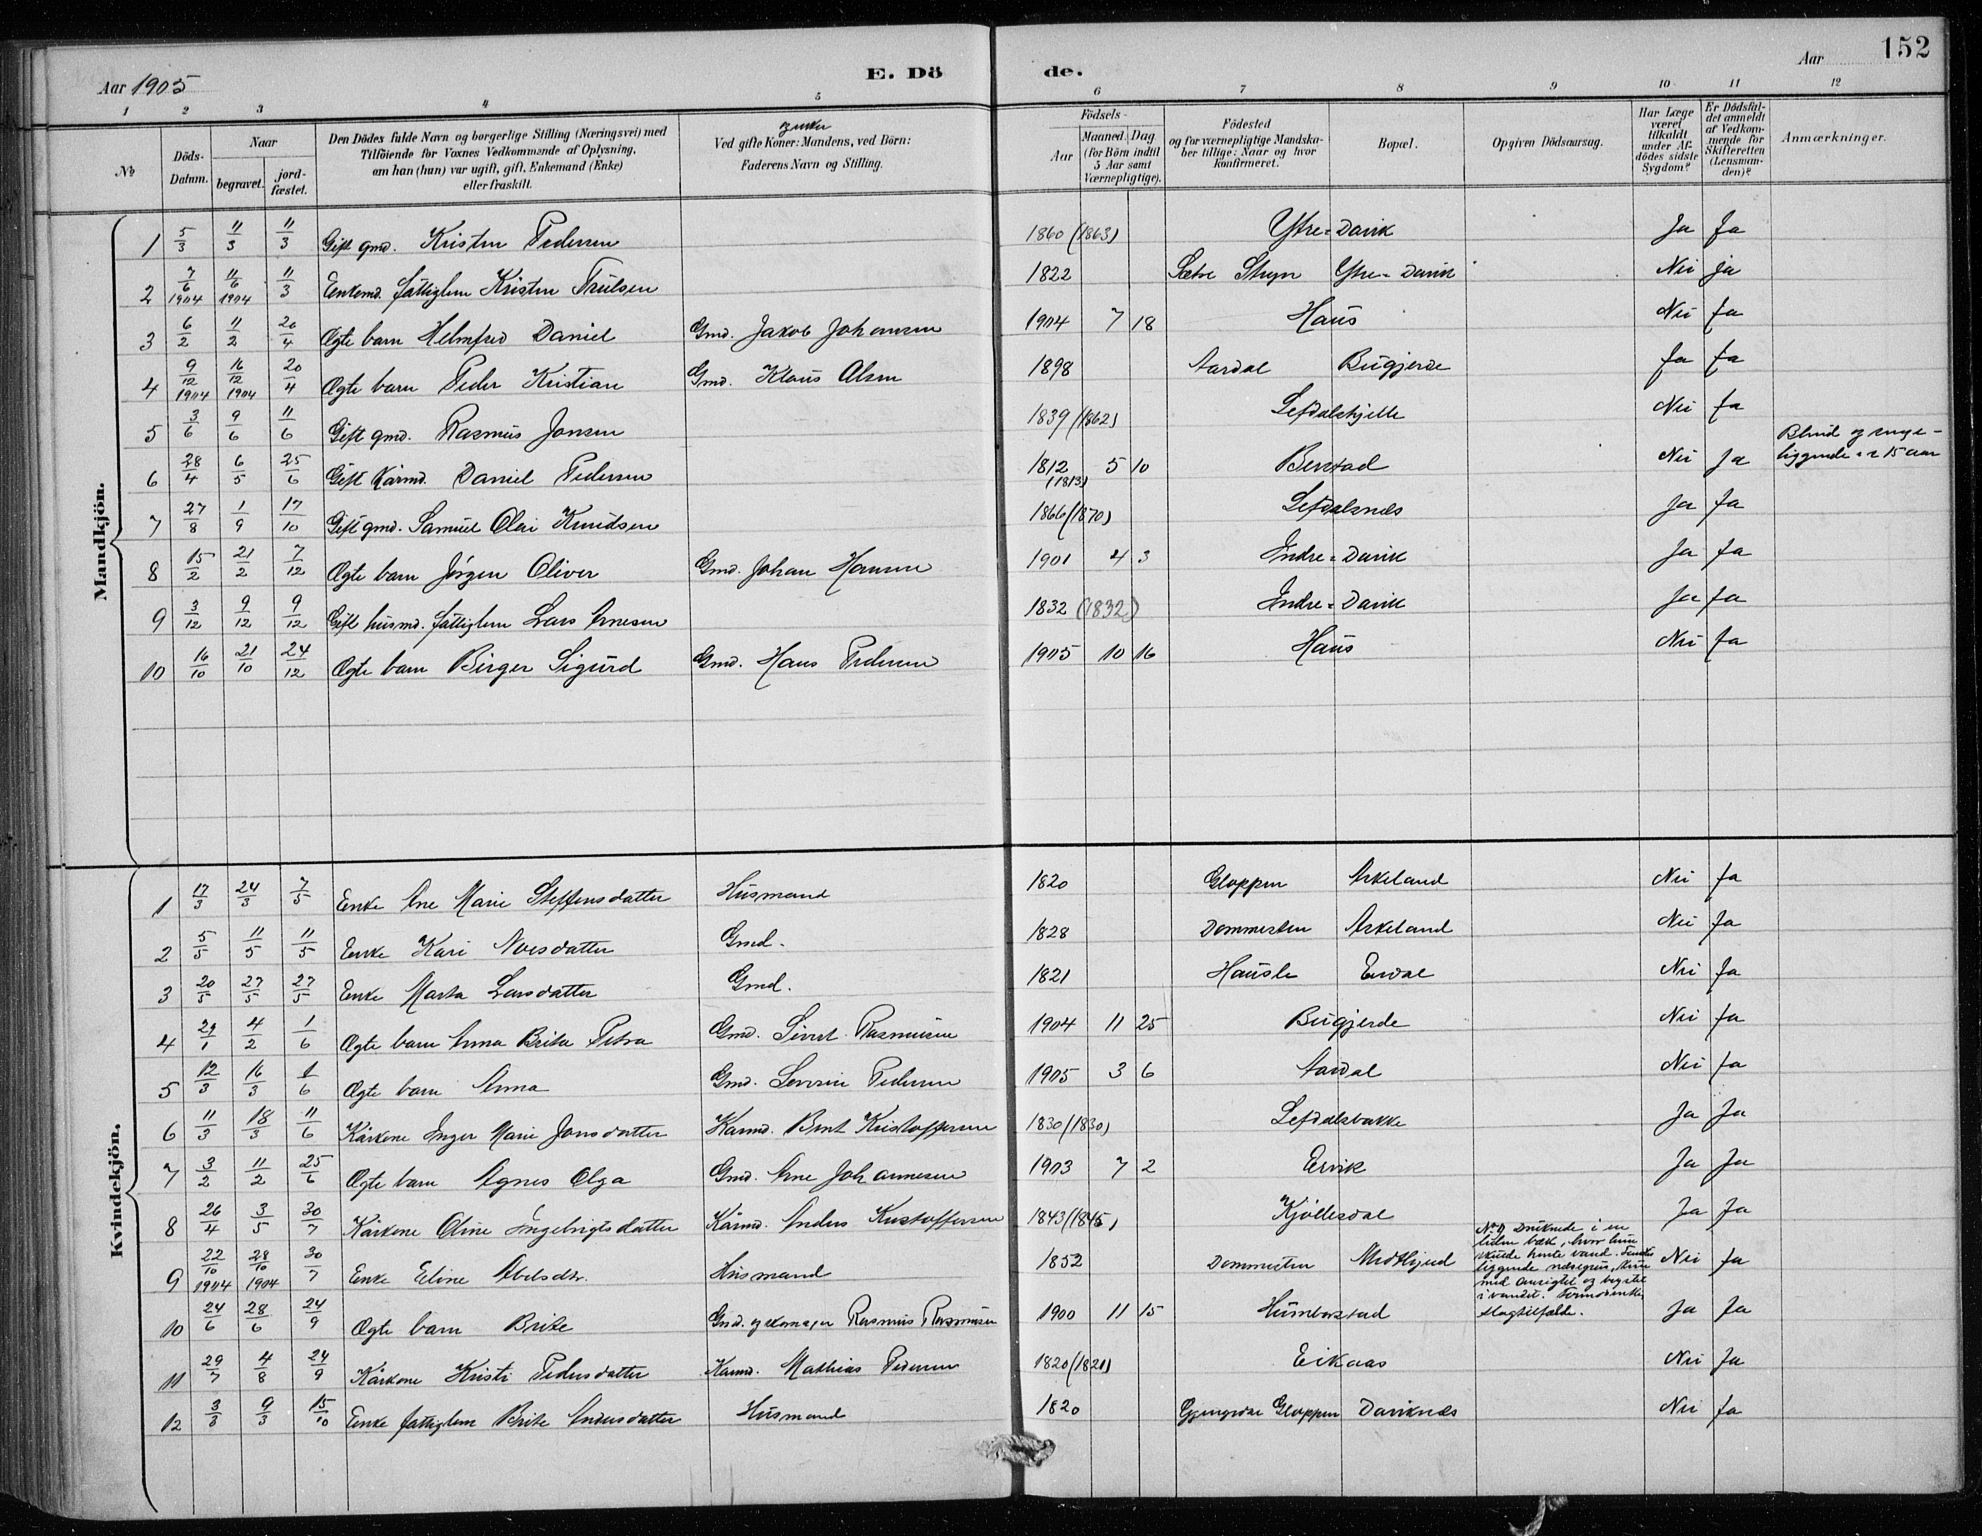 Aar 1905 E. Dö de. Aar 152
1 2 3 4 5 6 7 8 9 10 11 12
№
Döds-Datum.
Naar
begravet.
jordfæstet.
Den Dödes fulde Navn og borgerlige Stilling (Næringsvei) med
Tilföiende for Voxnes Vedkommende af Oplysning,
om han (hun) var ugift, gift, Enkemand (Enke)
eller fraskilt.
og enker
Ved gifte Koner: Mandens, ved Börn:
Faderens Navn og Stilling.
Födsels-
Aar
Maaned. Dag
(for Börn indtil
5 Aar samt
Værnepligtige).
Födested
og for værnepligtige Mandska-
ber tillige: Naar og hvor
konfirmeret.
Bopæl.
Opgiven Dödsaarsag.
Har Læge
været
tilkaldt
under Af-
dödes sidste
Sygdom?
Er Dödsfal-
det anmeldt
af Vedkom-
mende for
Skifteretten
(Lensman-
den)?
Anmærkninger.
Mandkjön.
1 5/3 11/3 11/3 Gift gmd. Kristen Pedersen 1860 (1863) Ytre-Davik Ja Ja
2 7/6 1904 11/6 1904 11/3 Enkemd. fattiglem Kristen Trulsen 1822 Sætre Stryn Ytre-Davik Nei ja
3 6/2 11/2 20/4 Ægte barn Helmfred Daniel Gmd. Jakob Johansen 1904 7 18 Haus Nei Ja
4 9/12 1904 16/12 1904 20/4 Ægte barn Peder Kristian Gmd. Klaus Olsen 1898 Aardal Bugjerde Ja Ja
5 3/6 9/6 11/6 Gift gmd. Rasmus Jonsen 1839 (1862) Lefdalshjelle Nei Ja
6 28/4 6/5 25/6 Gift Kårmd. Daniel Pedersen 1812 (1813) 5 10 Berstad Nei Ja Blind og senge-
liggende i 15 aar
7 27/8 1/9 17/10 Gift gmd. Samuel Olai Knudsen 1866 (1870) Lefdalsnes Ja Ja
8 15/2 21/2 7/12 Ægte barn Jörgen Oliver Gmd. Johan Hansen 1901 4 3 Indre-Davik Ja Ja
9 3/12 9/12 9/12 Gift husmd. fattiglem Lars Arnesen 1832 (1832) Indre-Davik Ja Ja
10 16/10 21/10 24/12 Ægte barn Birger Sigurd Gmd. Hans Pedersen 1905 10 16 Haus Nei Ja
Kvindekjön.
1 17/3 24/3 7/5 Enke Ane Marie Steffensdatter Husmand 1820 Gloppen Askeland Nei Ja
2 5/5 11/5 11/5 Enke Kari Noesdatter Gmd. 1828 Dommesten Askeland Nei Ja
3 20/5 27/5 27/5 Enke Marta Larsdatter Gmd. 1821 Hausle Erdal Nei Ja
4 29/1 4/2 1/6 Ægte barn Anna Brita Petra Gmd. Sivert Rasmusen 1904 11 25 Bugjerde Nei Ja
5 12/3 16/3 1/6 Ægte barn Anna Gmd. Severin Pedersen 1905 3 6 Aardal Nei Ja
6 11/3 18/3 11/6 Kårkone Inger Marie Jonsdatter Karmd. Bent Kristoffersen 1830 (1830) Lefdalsbakke Ja Ja
7 3/2 11/2 25/6 Ægte barn Agnes Olga Gmd. Arne Johannesen 1903 7 2 Ervik Ja Ja
8 26/4 3/5 30/7 Kårkone Oline Ingebrigtsdatter Kårmd. Anders Kristoffersen 1843 (1845) Kjöllesdal Ja Ja
9 22/10 1904 28/10 1904 30/7 Enke Eline Abelsdtr. Husmand 1852 Dommesten Midthjell Nei Ja
No. 9 Druknede i en
liden bæk, hvor hun
skulde hente vand. Fandtes
liggende næsegrus, kun
med ansigtet og brystet
i vandet. Formodentlig
slagtilfælde.
10 24/6 28/6 24/9 Ægte barn Brite Gmd. og skomager Rasmus Rasmusen 1900 11 15 Humborstad Ja Ja
11 29/7 4/8 24/9 Kårkone Kristi Pedersdatter Karmd. Mathias Pedersen 1820 (1821) Eikaas Nei Ja
12 3/3 9/3 15/10 Enke fattiglem Brite Andersdatter Husmand 1820 Gjengedal Gloppen Daviknes Nei Ja